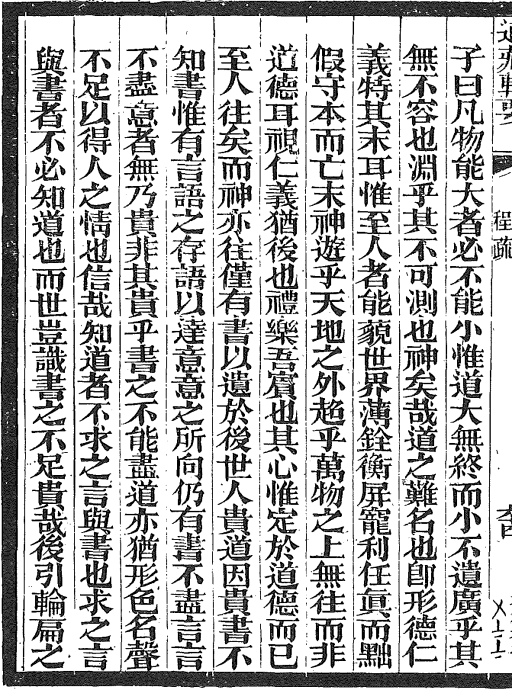 子曰凡物能大者必不能小惟道大無終而小不遺廣乎其
無不容也淵乎其不可測也神矣哉道之難名也卽形德仁
義特其末耳惟至人者能藐世界薄銓衡屏寵利任眞而黜
假守本而亡末神遊乎天地之外超乎萬物之上無往而非
道德耳視仁義猶後也禮樂吾賔也其心惟定於道德而已
至人往矣而神亦往僅有書以遺於後世人貴道因貴書不
知書惟有言語之存語以達意意之所向仍有書不盡言言
不盡意者無乃貴非其貴乎書之不能盡道亦猶形色名聲
不足以得人之情也信哉知道者不求之言與書也求之言
與書者不必知道也而世豈識書之不足貴哉後引輪扁之